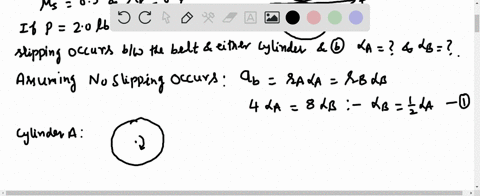 If P = 2.0 lb
slipping occurs b/w the belt & either cylinder & ⓑ αA = ? & αB = ?.
Assuming No Slipping Occurs : ab = rA αA = rB αB
4 αA = 8 αB :- αB = ½ αA — ①
Cylinder A :